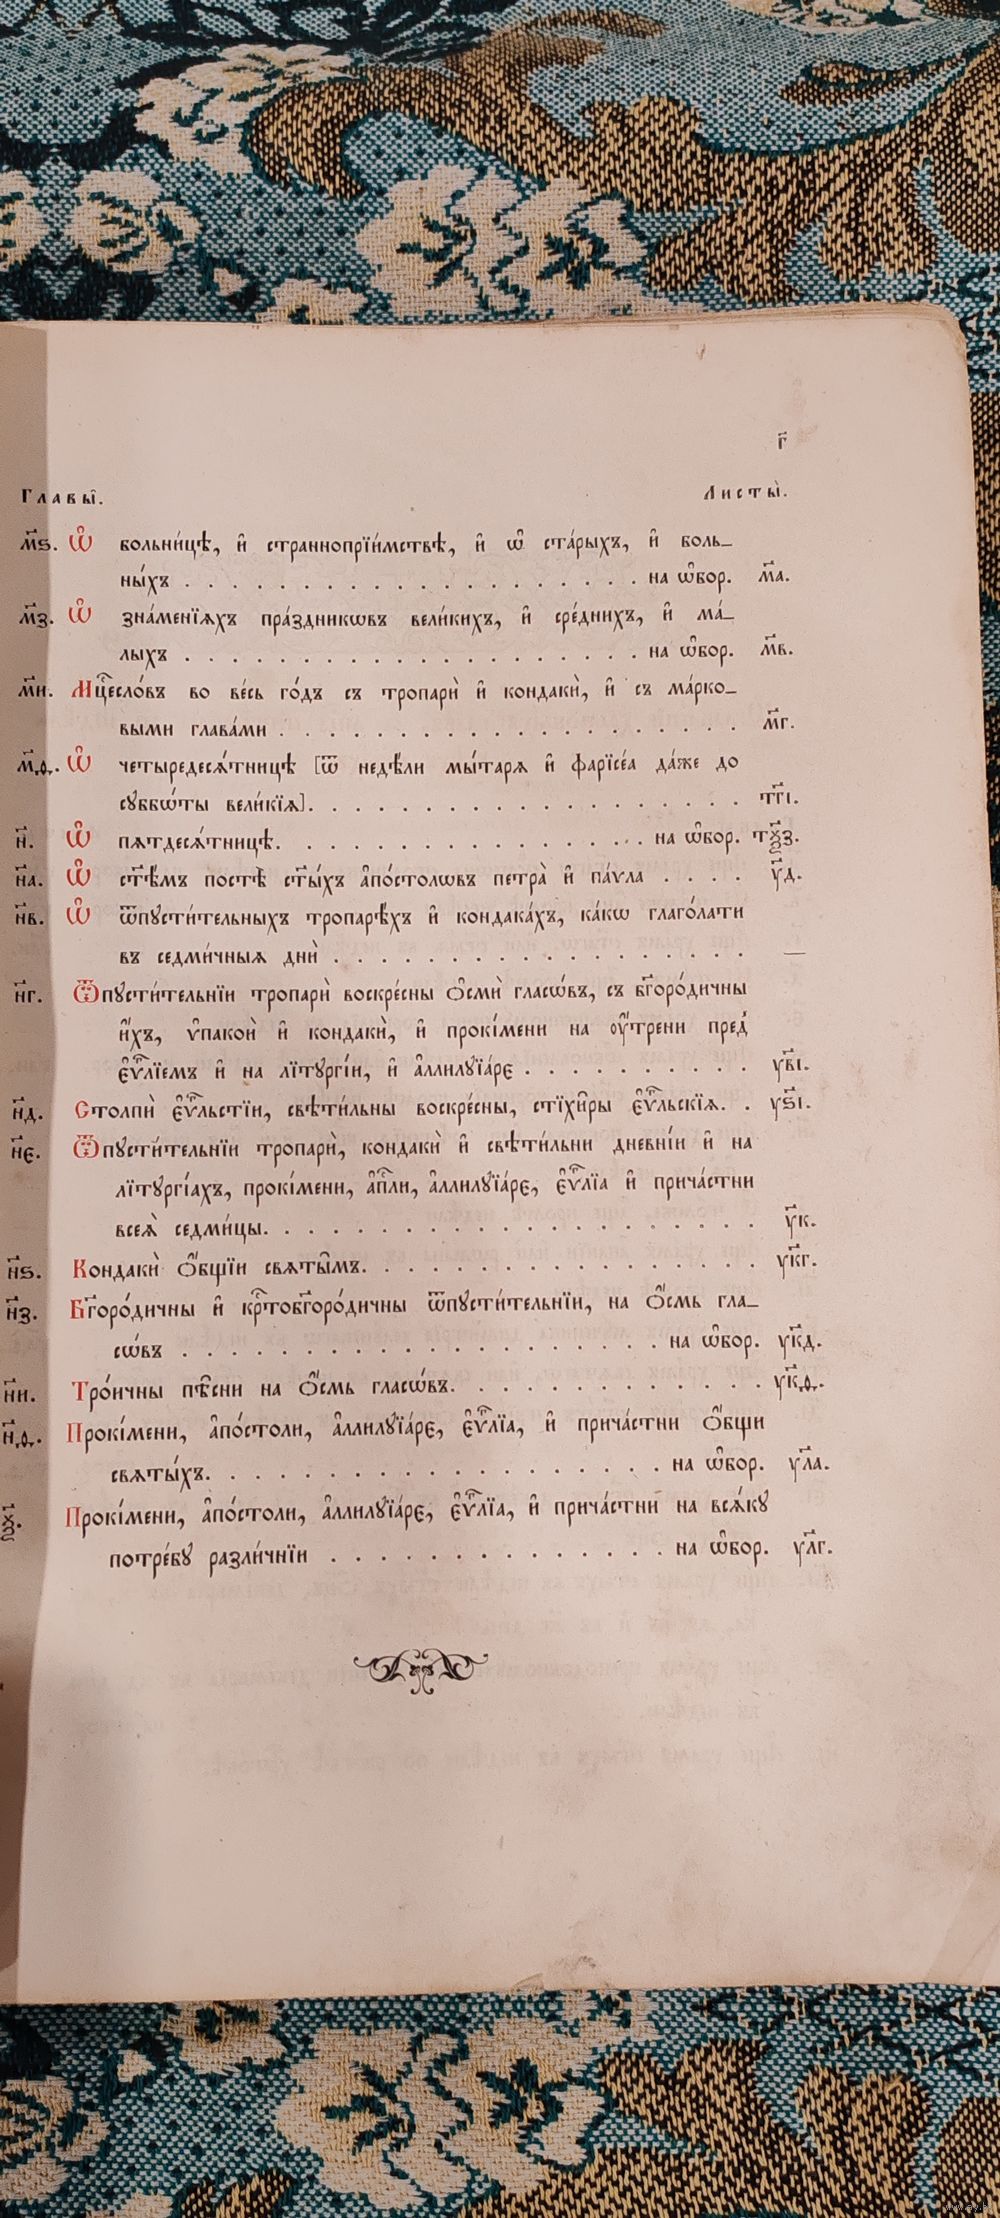 г҃
Главы̑. Листы̀.
м҃ѕ. Ѡ҆ больни́цѣ, и҆ страннопрїи́мствѣ, и҆ ѡ҆ ста́рыхъ, и҆ боль_
ны́хъ . . . . . . . . . . . . . . . . . . . на ѡ҆бор. м҃а.
м҃з. Ѡ҆ зна́менїѧхъ пра́здникѡвъ вели́кихъ, и҆ сре́днихъ, и҆ ма́_
лыхъ . . . . . . . . . . . . . . . . . . . на ѡ҆бор. м҃в.
м҃и. Мц҇есло́въ во ве́сь го́дъ съ тропарѝ и҆ кондакѝ, и҆ съ ма́рко_
выми глава́ми . . . . . . . . . . . . . . . . . . . м҃г.
м҃ѳ. Ѡ҆ четыредесѧ́тницѣ [ѿ недѣ́ли мы́тарѧ и҆ фарїсе́а да́же до
сꙋббѡ́ты вели́кїѧ]. . . . . . . . . . . . . . . . . . т҃гі.
н҃. Ѡ҆ пѧтдесѧ́тницѣ. . . . . . . . . . . . . . . на ѡ҆бор. тѯ҃з.
н҃а. Ѡ҆ ст҃ѣ́мъ постѣ̀ ст҃ы́хъ а҆по́столѡвъ петра̀ и҆ па́ѵла . . . . у҃д.
н҃в. Ѡ҆ ѿпꙋсти́тельныхъ тропарѣ́хъ и҆ кондака́хъ, ка́кѡ глаго́лати
въ седми́чныѧ днѝ . . . . . . . . . . . . . . . . . —
н҃г. Ѿпꙋсти́тельнїи тропарѝ воскре́сны ѻ҆смѝ гласѡ́въ, съ бг҃оро́дичны
и҆́хъ, ѵ҆пакоѝ и҆ кондакѝ, и҆ прокі́мени на оу҆́трени пред̾
є҆ѵⷢ҇лїемъ и҆ на лїтꙋргі́и, и҆ а҆ллилꙋїа́рє . . . . . . . . . . у҃ві.
н҃д. Столпѝ є҆ѵⷢ҇льстїи, свѣти́льны воскре́сны, стїхи̑ры є҆ѵⷢ҇льскїѧ. . у҃ѕі.
н҃є. Ѿпꙋсти́тельнїи тропарѝ, кондакѝ и҆ свѣти́льни дневні́и и҆ на
лїтꙋргі́ахъ, прокі́мени, а҆пⷭ҇ли, а҆ллилꙋїа́рє, є҆ѵⷢ҇лїа и҆ прича́стни
всеѧ̀ седми́цы. . . . . . . . . . . . . . . . . . . . у҃к.
н҃ѕ. Кондакѝ ѻ҆́бщїи свѧты̑мъ. . . . . . . . . . . . . . . . у҃кг.
н҃з. Бг҃оро́дичны и҆ крⷭ҇тобг҃оро́дичны ѿпꙋсти́тельнїи, на ѻ҆́смь гла_
сѡ́въ . . . . . . . . . . . . . . . . . . . . на ѡ҆бор. у҃кд.
н҃и. Тро́ичны пѣ̑сни на ѻ҆́смь гласѡ́въ. . . . . . . . . . . . . у҃кѳ.
н҃ѳ. Прокі́мени, а҆по́столи, а҆ллилꙋїа́рє, є҆ѵⷢ҇лїа, и҆ прича́стни ѻ҆́бщи
свѧты́хъ. . . . . . . . . . . . . . . . . . . на ѡ҆бор. у҃ла.
ѯ҃. Прокі́мени, а҆по́столи, а҆ллилꙋїа́рє, є҆ѵⷢ҇лїа, и҆ прича́стни на всѧ́кꙋ
потре́бꙋ разли́чнїи . . . . . . . . . . . . . . на ѡ҆бор. у҃лг.